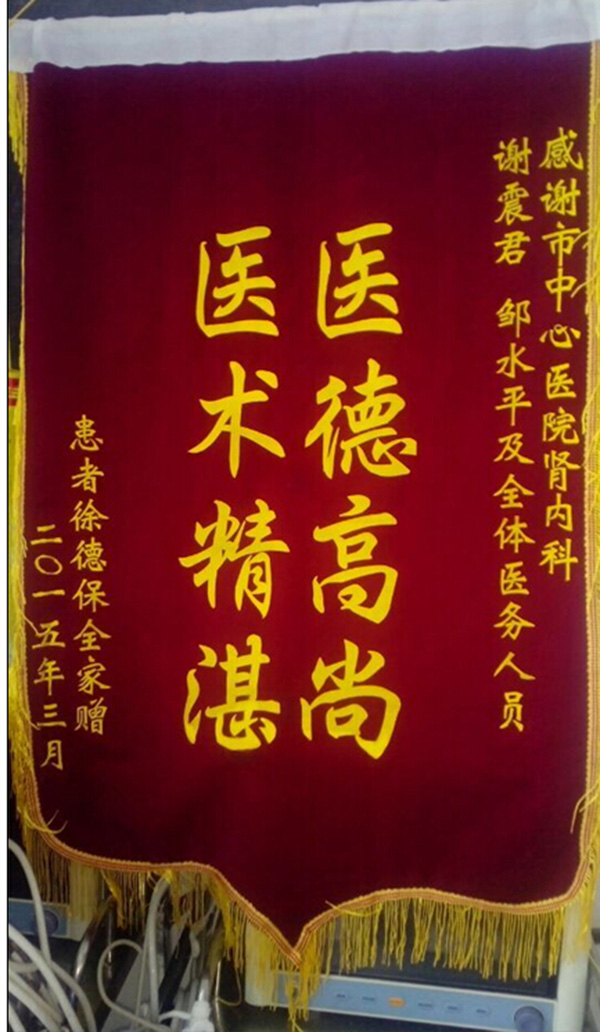 感谢市中心医院肾内科
谢震君 邹水平及全体医务人员
医德高尚
医术精湛
患者徐德保全家赠
二〇一五年三月